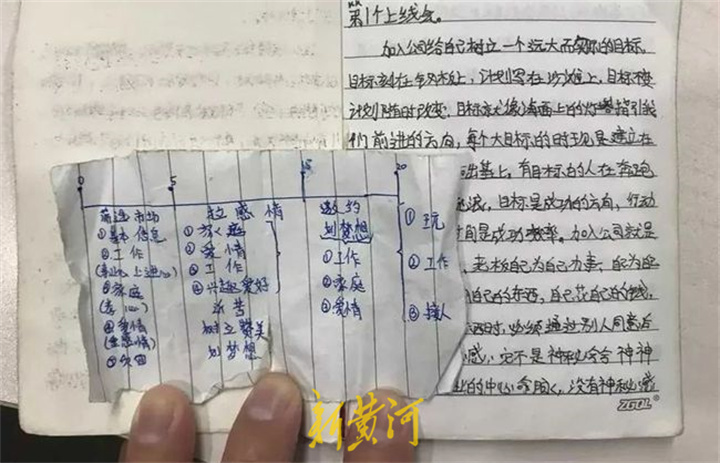 第1个上线会。
加入公司给自己树立一个远大而实际的目标,
目标刻在钢板上,计划写在沙滩上,目标不变
计划随时改变,目标就像海面上的灯塔指引我
们前进的方向,每个大目标的实现是建立在
出基上,有目标的人在奔跑
流浪,目标是成功的方向,行动
间是成功 加入公司就是
老板自己为自己办事,自为自
自己的东西,自己花自己的钱,
西时,必须通过别人同意后
感,它不是神秘会会神神
的中心 没有神秘感
ZGOL
0 5 15 20
筛选市场
①基本信息
②工作
(事业心上进心)
③家庭
(孝心)
④爱情
(重感情)
拉感情
①家庭
②爱情
③工作
④兴趣爱好
诉苦
树立赞美
划梦想
邀约
划梦想
①工作
②家庭
③爱情
①玩
②工作
③接人
新黄河